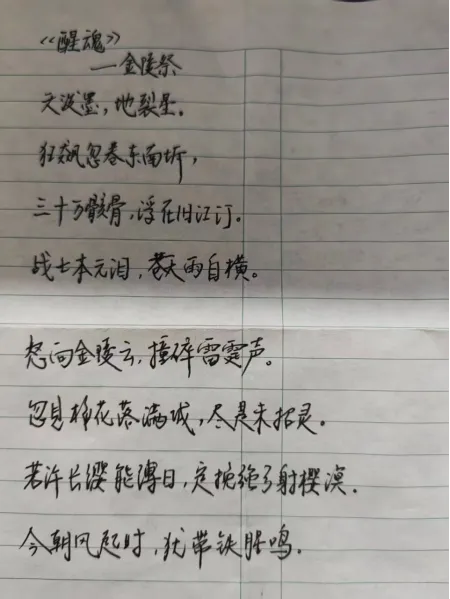 《醒魂》
—金陵祭
天泼墨，地裂星。
狂飙忽卷东南圻，
三十万骸骨，浮在旧江汀。
战士本无泪，苍天雨自横。
怒向金陵云，撞碎雷霆声。
忽见梅花落满城，尽是未招灵。
若许长缨能缚日，定挽强弓射樱溟。
今朝风起时，犹带铁腥鸣。